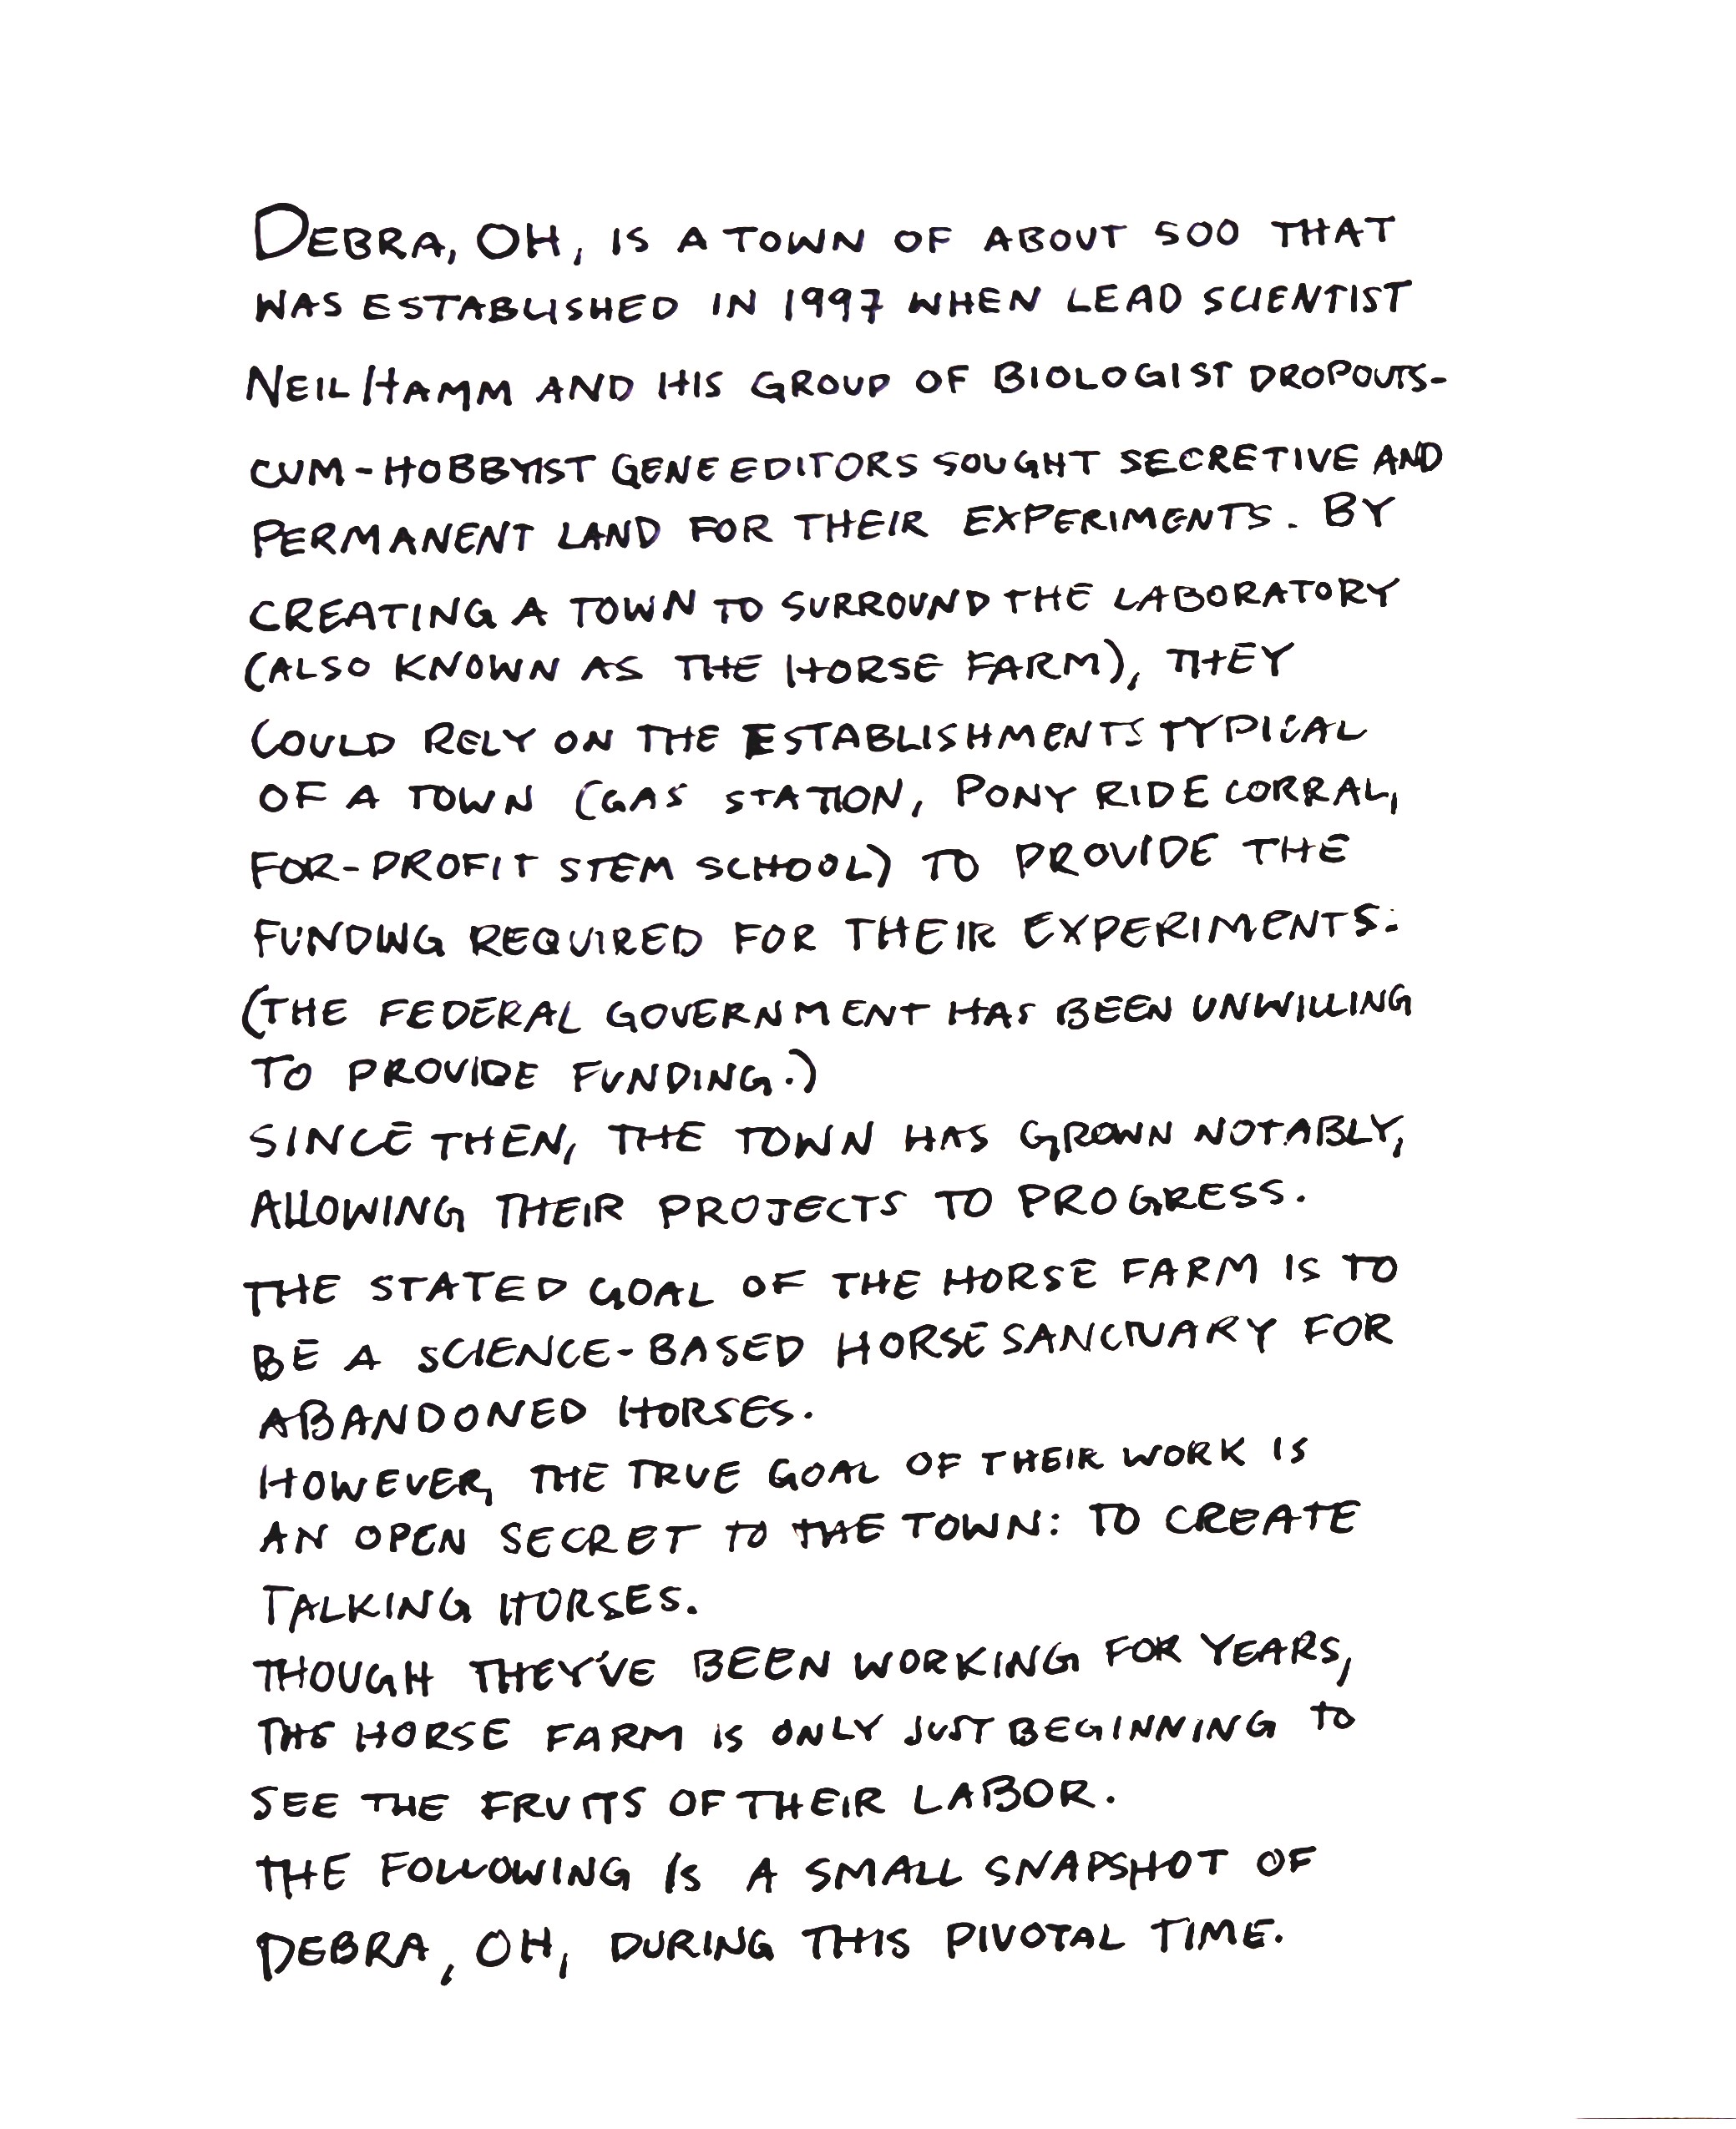 DEBRA, OH, IS A TOWN OF ABOUT 500 THAT
WAS ESTABLISHED IN 1997 WHEN LEAD SCIENTIST
NEIL HAMM AND HIS GROUP OF BIOLOGIST DROPOUTS-
CUM-HOBBYIST GENE EDITORS SOUGHT SECRETIVE AND
PERMANENT LAND FOR THEIR EXPERIMENTS. BY
CREATING A TOWN TO SURROUND THE LABORATORY
(ALSO KNOWN AS THE HORSE FARM), THEY
COULD RELY ON THE ESTABLISHMENTS TYPICAL
OF A TOWN (GAS STATION, PONY RIDE CORRAL,
FOR-PROFIT STEM SCHOOL) TO PROVIDE THE
FUNDING REQUIRED FOR THEIR EXPERIMENTS.
(THE FEDERAL GOVERNMENT HAS BEEN UNWILLING
TO PROVIDE FUNDING.)
SINCE THEN, THE TOWN HAS GROWN NOTABLY,
ALLOWING THEIR PROJECTS TO PROGRESS.
THE STATED GOAL OF THE HORSE FARM IS TO
BE A SCIENCE-BASED HORSE SANCTUARY FOR
ABANDONED HORSES.
HOWEVER, THE TRUE GOAL OF THEIR WORK IS
AN OPEN SECRET TO THE TOWN: TO CREATE
TALKING HORSES.
THOUGH THEY'VE BEEN WORKING FOR YEARS,
THE HORSE FARM IS ONLY JUST BEGINNING TO
SEE THE FRUITS OF THEIR LABOR.
THE FOLLOWING IS A SMALL SNAPSHOT OF
DEBRA, OH, DURING THIS PIVOTAL TIME.